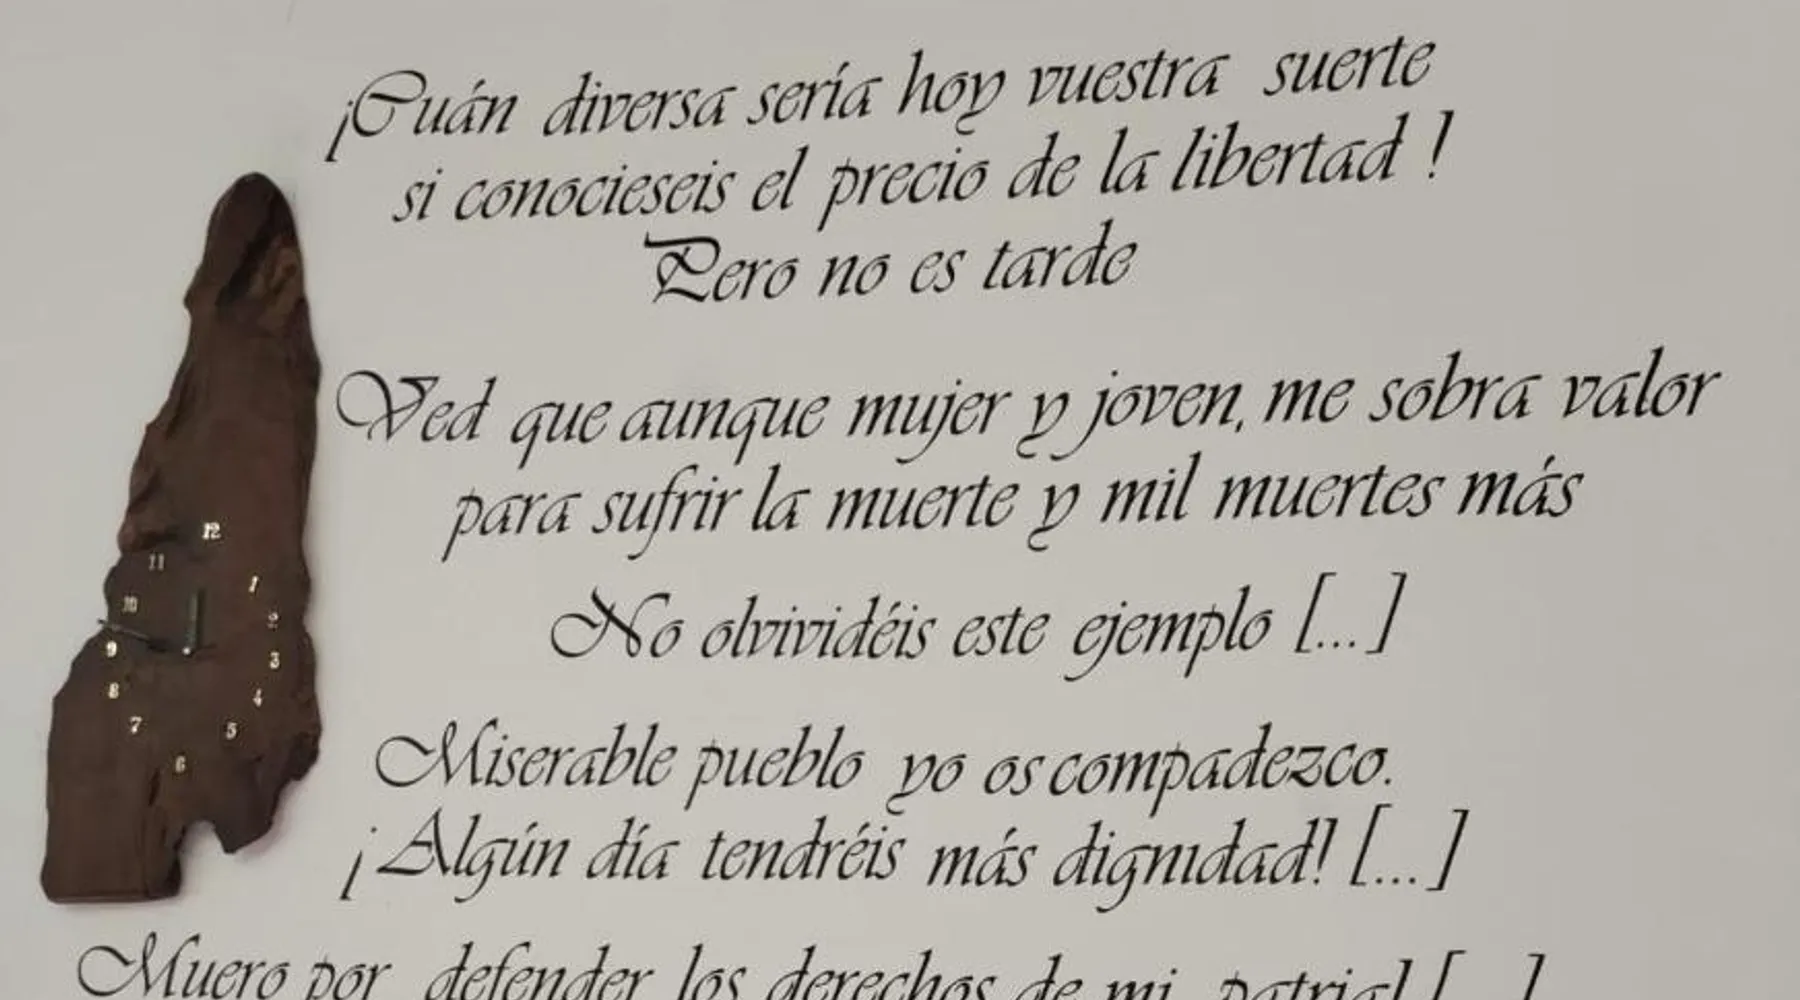 ¡Cuán diversa sería hoy vuestra suerte
si conocieseis el precio de la libertad !
Pero no es tarde
Ved que aunque mujer y joven, me sobra valor
para sufrir la muerte y mil muertes más
No olvividéis este ejemplo [...]
Miserable pueblo yo os compadezco.
¡Algún día tendréis más dignidad! [...]
Muero por defender los derechos de mi patria! [...]
12
11
1
10
2
9
3
8
4
7
5
6